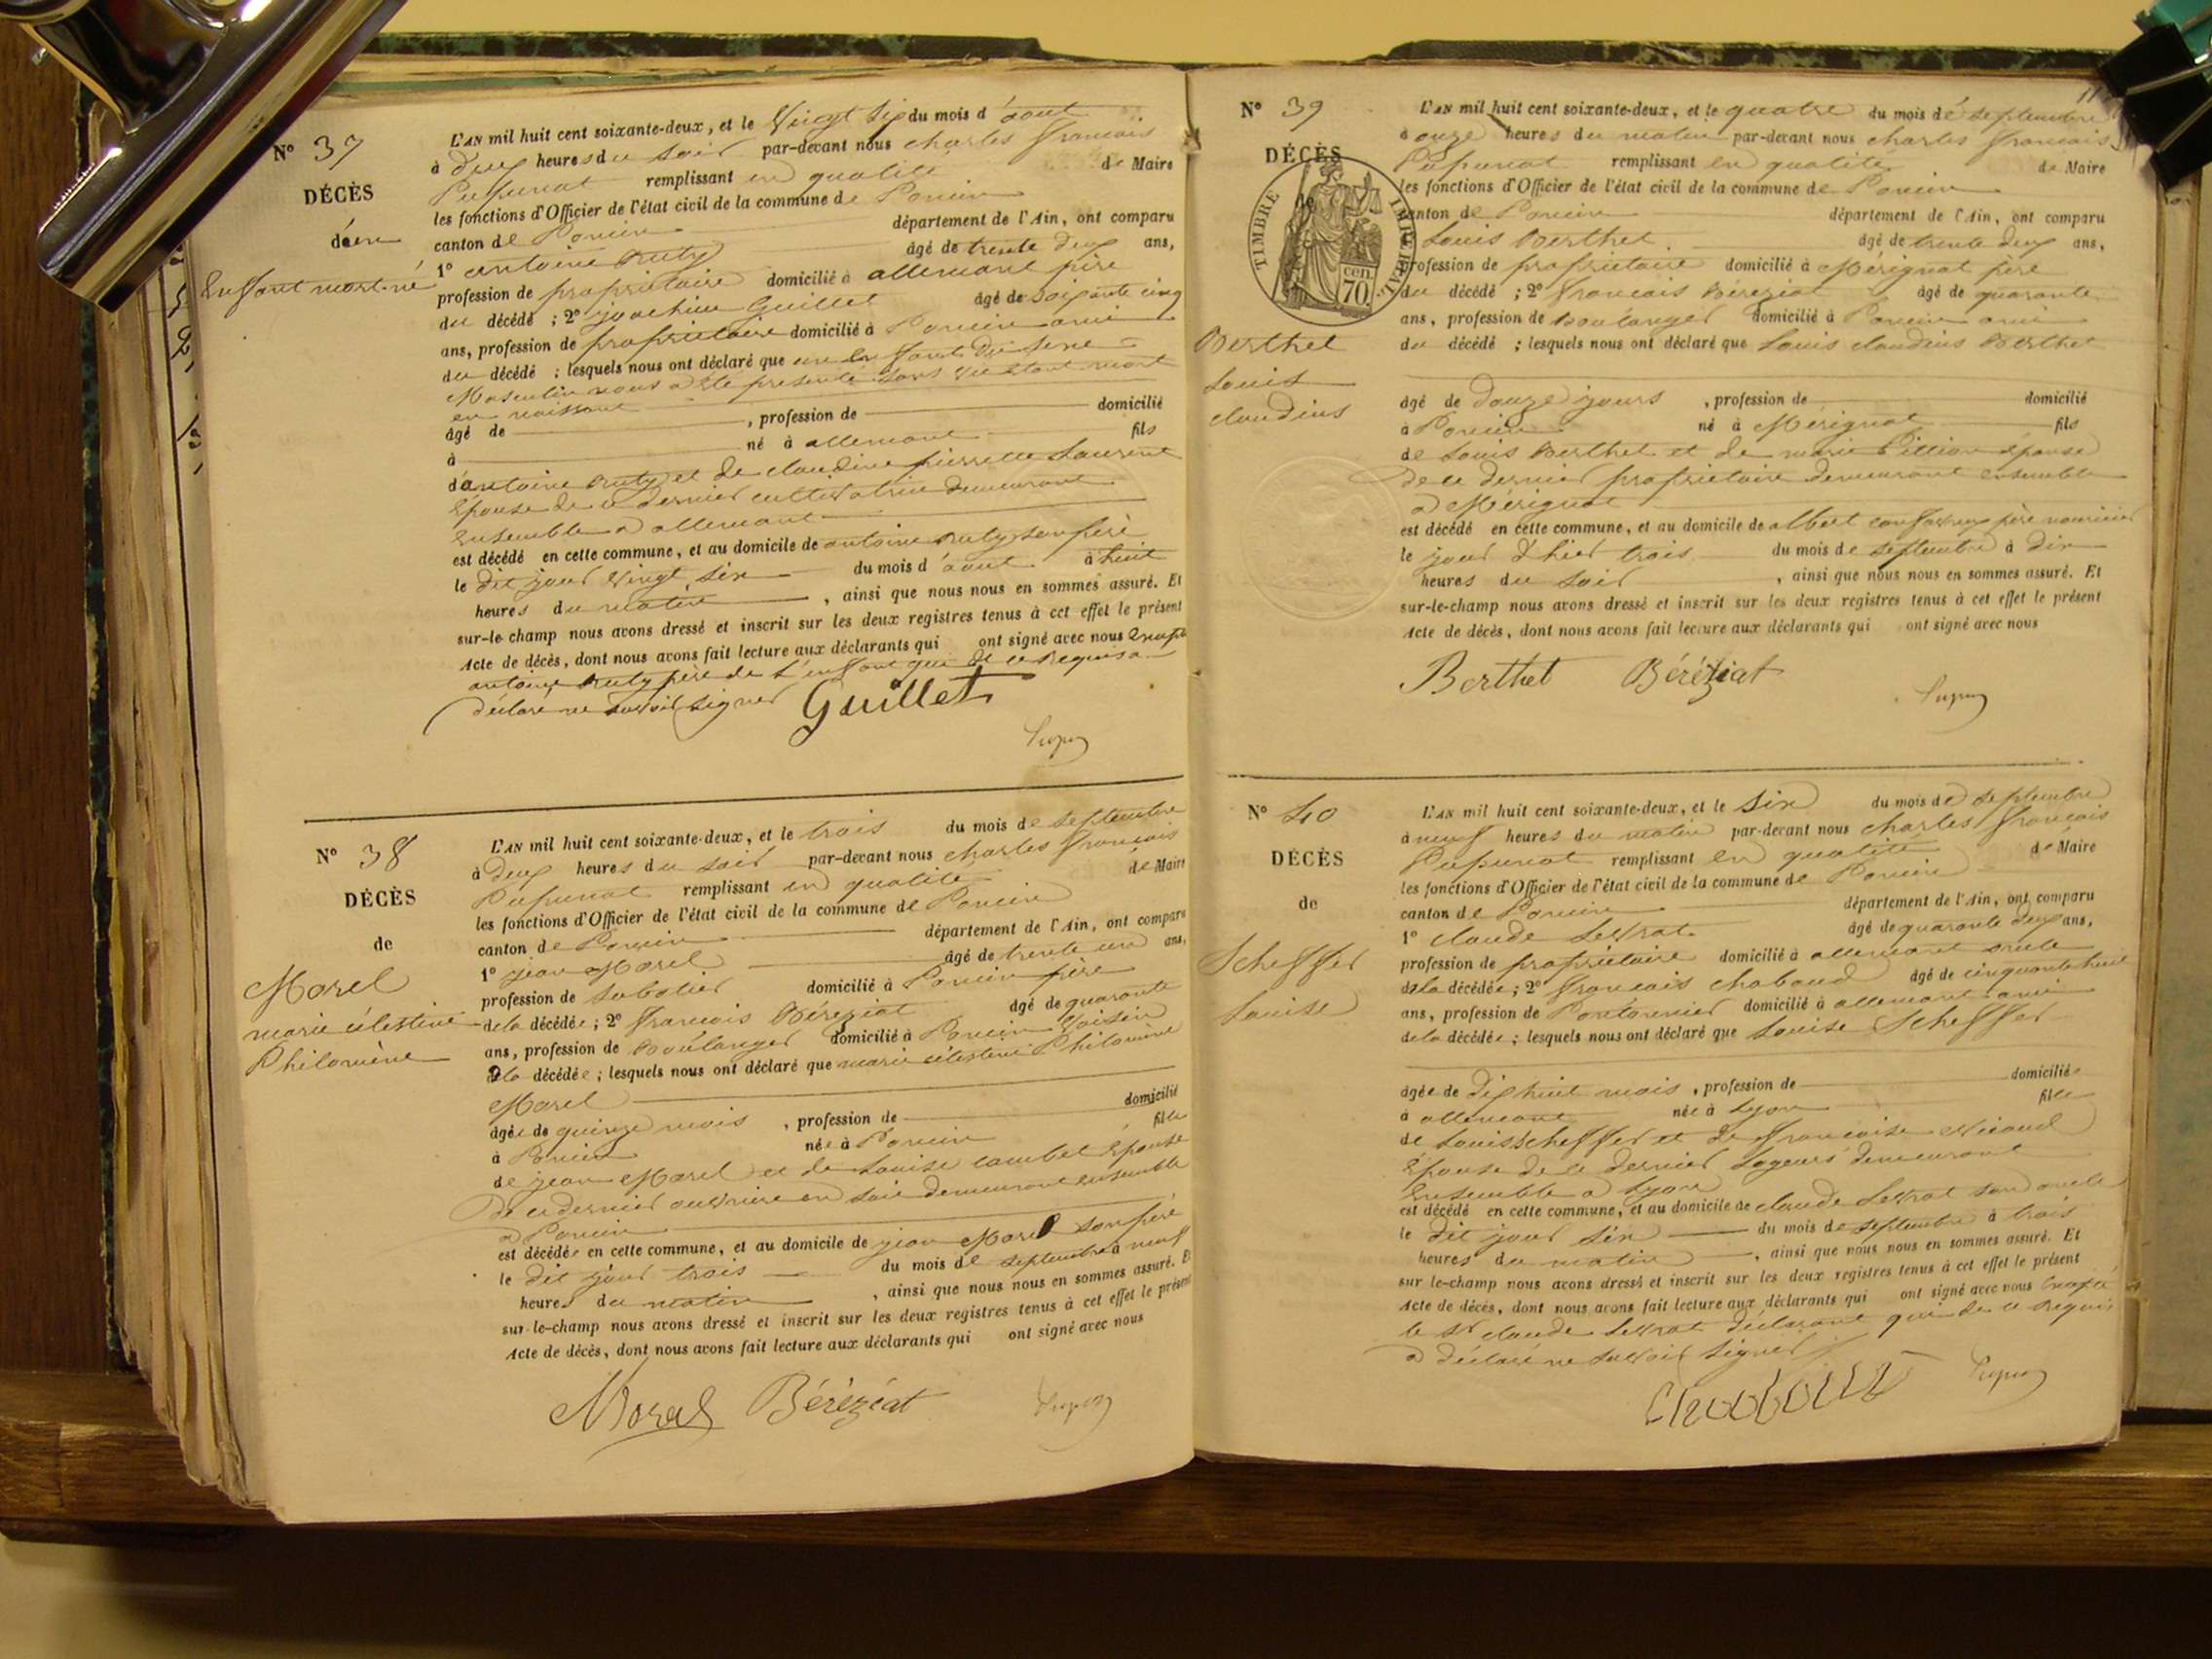 N° 37
DÉCÈS
d'un
Enfant mort-né
L'AN mil huit cent soixante-deux, et le Vingt six du mois d'aout
à deux heures du soir par-devant nous charles francois
Pupunat remplissant en qualité de Maire
les fonctions d'Officier de l'état civil de la commune de Poncin
canton de Poncin département de l'Ain, ont comparu
1° antoine Ruty âgé de trente deux ans,
profession de propriétaire domicilié à allemant père
du décédé ; 2° joachim Guillet âgé de soixante cinq
ans, profession de propriétaire domicilié à Poncin ami
du décédé ; lesquels nous ont déclaré que un enfant du sexe
Masculin nous a été présenté sans vie étant mort
en naissant
âgé de , profession de domicilié
à né à allemant fils
d'antoine Ruty et de claudine pierrette Laurent
Epouse de ce dernier cultivatrice demeurant
Ensemble a allemant
est décédé en cette commune, et au domicile de antoine Ruty son père
le dit jour Vingt six du mois d'aout à huit
heures du matin , ainsi que nous nous en sommes assuré. Et
sur-le champ nous avons dressé et inscrit sur les deux registres tenus à cet effet le présent
Acte de décès, dont nous avons fait lecture aux déclarants qui ont signé avec nous Excepté
antoine Ruty père de l'enfant qui de ce Requis a
déclaré ne savoir signer Guillet
N° 38
DÉCÈS
de
Morel
marie célestine
Philomène
L'AN mil huit cent soixante-deux, et le trois du mois de septembre
à deux heures du soir par-devant nous charles francois
Pupunat remplissant en qualité de Maire
les fonctions d'Officier de l'état civil de la commune de Poncin
canton de Poncin département de l'Ain, ont comparu
1° jean Morel âgé de trente un ans,
profession de sabotier domicilié à Poncin père
de la décédée ; 2° francois Béréziat âgé de quarante
ans, profession de Boulanger domicilié à Poncin Voisin
de la décédée ; lesquels nous ont déclaré que marie célestine Philomène
Morel
âgée de quinze mois , profession de domicilié
à Poncin née à Poncin fille
de jean Morel et de Louise combet Epouse
De ce dernier ouvrière en soie demeurant ensemble
a Poncin
est décédée en cette commune, et au domicile de jean Morel son père
le dit jour trois du mois de septembre à neuf
heures du matin , ainsi que nous nous en sommes assuré. Et
sur-le-champ nous avons dressé et inscrit sur les deux registres tenus à cet effet le présent
Acte de décès, dont nous avons fait lecture aux déclarants qui ont signé avec nous
Morel Béréziat
11
N° 39
DÉCÈS
de
TIMBRE IMPERIAL
70 cen.
Berthet
Louis
claudius
L'AN mil huit cent soixante-deux, et le quatre du mois de septembre
à onze heures du matin par-devant nous charles francois
Pupunat remplissant en qualité de Maire
les fonctions d'Officier de l'état civil de la commune de Poncin
canton de Poncin département de l'Ain, ont comparu
Louis Berthet âgé de trente deux ans,
profession de propriétaire domicilié à Mérignat père
du décédé ; 2° francois Béreziat âgé de quarante
ans, profession de Boulanger domicilié à Poncin ami
du décédé ; lesquels nous ont déclaré que Louis claudius Berthet
âgé de douze jours , profession de domicilié
à Poncin né à Mérignat fils
de Louis Berthet et de marie Pittion épouse
de ce dernier propriétaire demeurant ensemble
a Mérignat
est décédé en cette commune, et au domicile de albert père nourricier
le jour d'hier trois du mois de septembre à dix
heures du soir , ainsi que nous nous en sommes assuré. Et
sur-le-champ nous avons dressé et inscrit sur les deux registres tenus à cet effet le présent
Acte de décès, dont nous avons fait lecture aux déclarants qui ont signé avec nous
Berthet Béréziat
N° 40
DÉCÈS
de
Scheffer
Louise
L'AN mil huit cent soixante-deux, et le six du mois de septembre
à neuf heures du matin par-devant nous charles francois
Pupunat remplissant en qualité de Maire
les fonctions d'Officier de l'état civil de la commune de Poncin
canton de Poncin département de l'Ain, ont comparu
1° claude Levrat âgé de quarante deux ans,
profession de propriétaire domicilié à allemant oncle
de la décédée ; 2° francois chaboud âgé de cinquante huit
ans, profession de Pontonnier domicilié à allemant ami
de la décédée ; lesquels nous ont déclaré que Louise Scheffer
âgée de dix huit mois , profession de domiciliée
à allemant née à Lyon fille
de Louis Scheffer et de francoise
Epouse de ce dernier Logeurs demeurant
Ensemble a Lyon
est décédé en cette commune, et au domicile de claude Levrat son oncle
le dit jour six du mois de septembre à trois
heures du matin , ainsi que nous nous en sommes assuré. Et
sur le-champ nous avons dressé et inscrit sur les deux registres tenus à cet effet le présent
Acte de décès, dont nous avons fait lecture aux déclarants qui ont signé avec nous Excepté
le Sr claude Levrat déclarant qui de ce Requis
a déclaré ne savoir signer